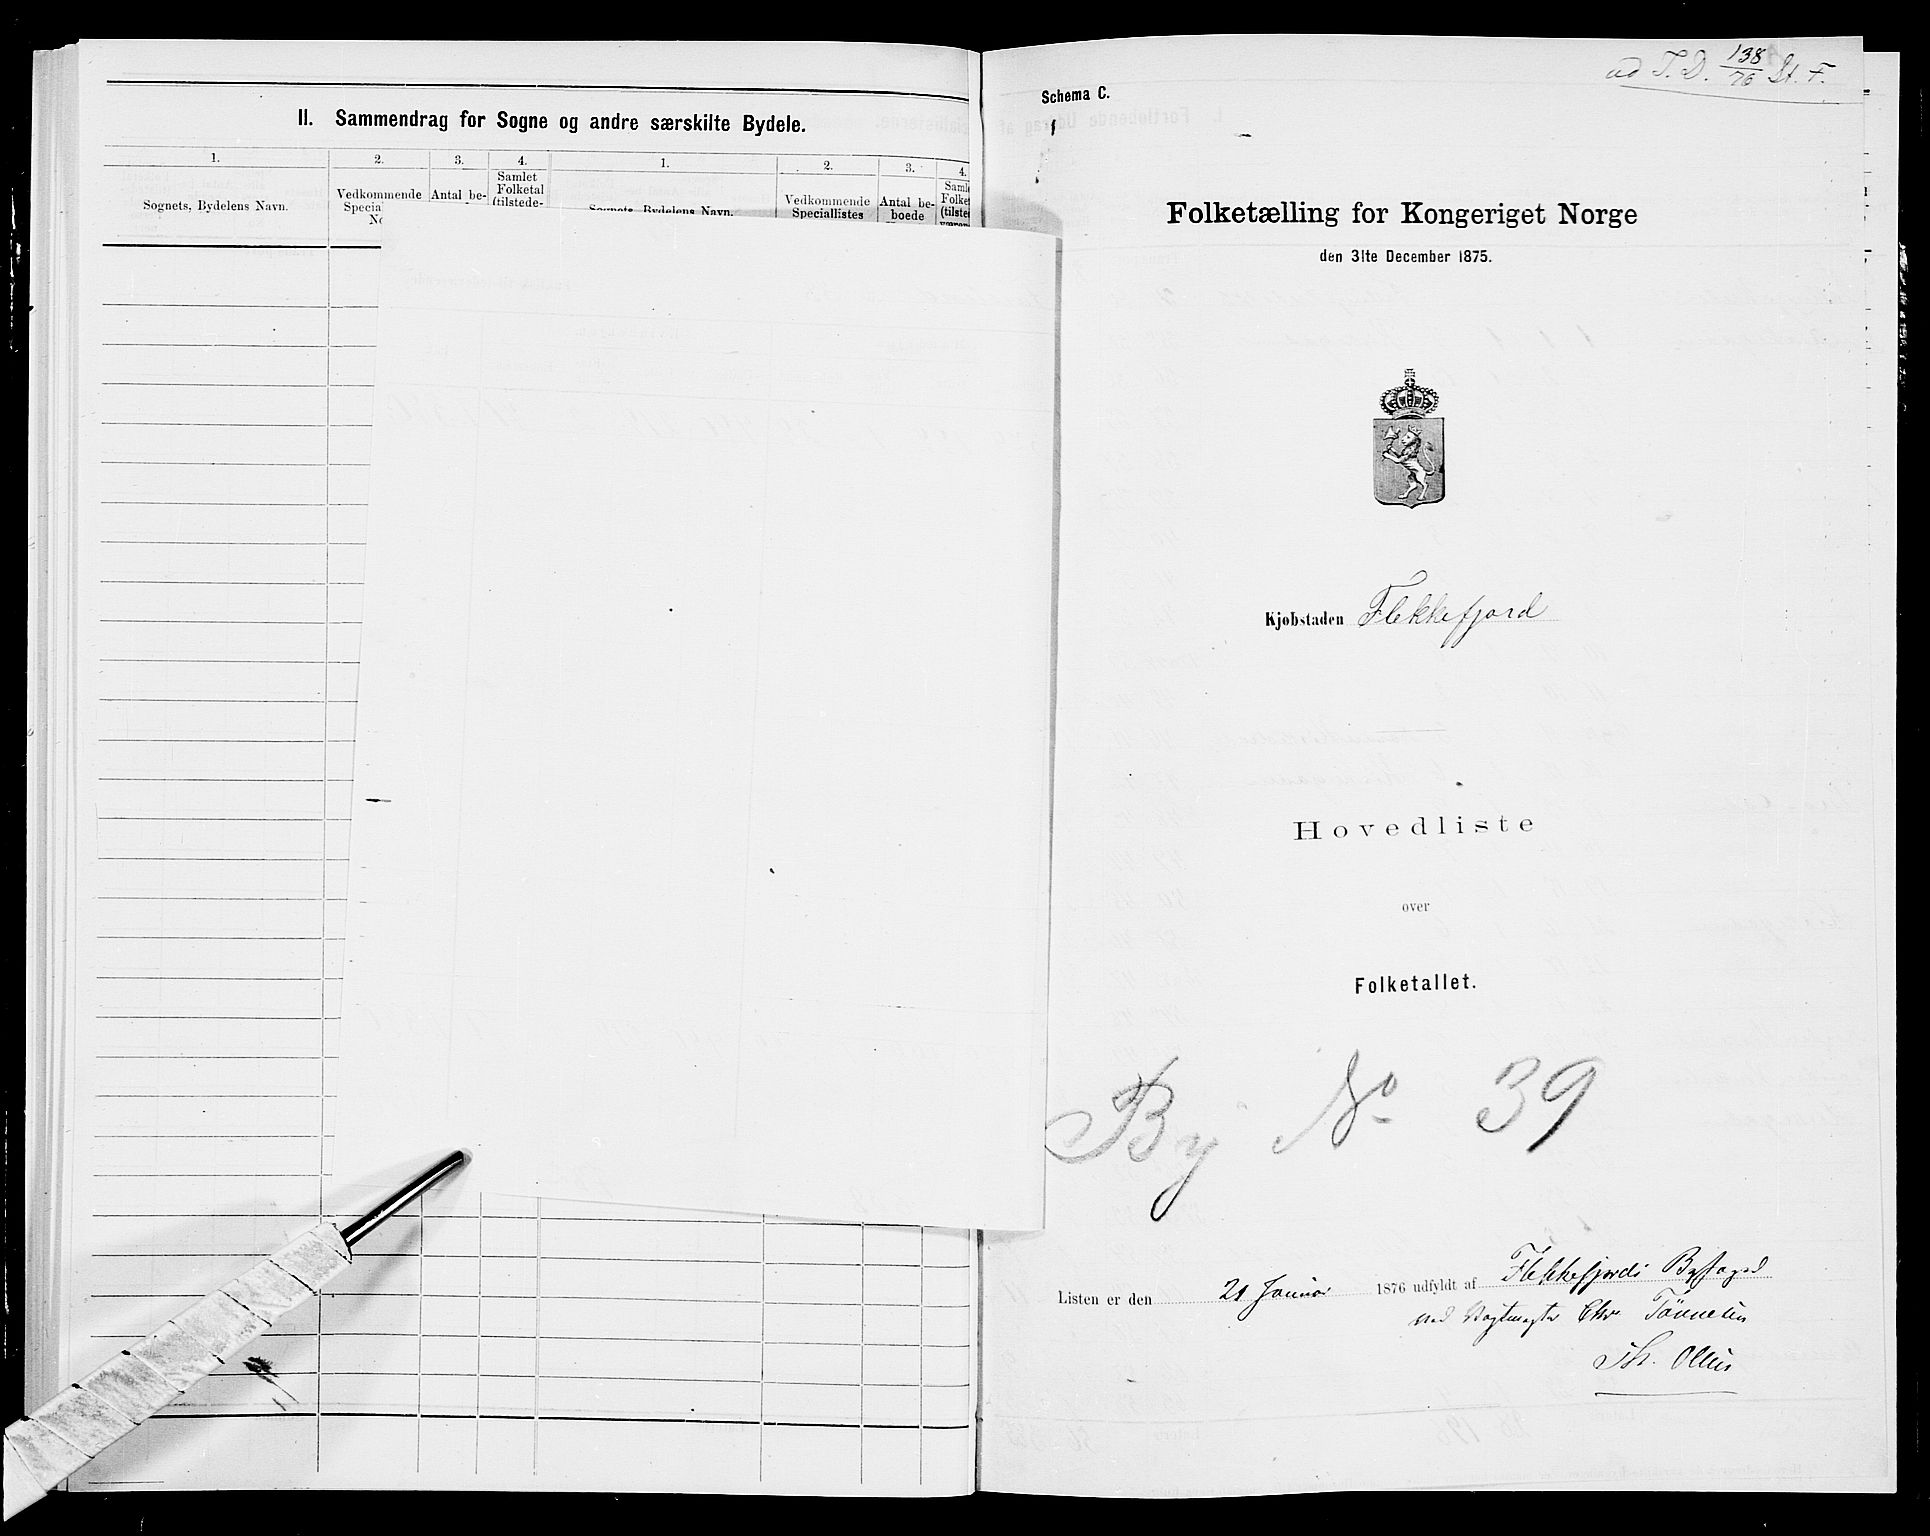 II. Sammendrag for Sogne og andre særskilte Bydele.
1. 2. 3. 4. 1. 2. 3. 4.
Sognets, Bydelens Navn.
Vedkommende
Antal be-
Samlet
Folketal
(tilstede-
Sognets, Bydelens Navn.
Vedkommende
Speciallistes
Antal be-
boede
ad T. D. 138/76 St. F.
Schema C.
Folketælling for Kongeriget Norge
den 31te December 1875.
Kjøbstaden Flekkefjord
Hovedliste
over
Folketallet.
By No 39
Listen er den 21 Januar 1876 udfyldt af Flekkefjords Byfoged
ved Vagtmester Chr. Tönnesen